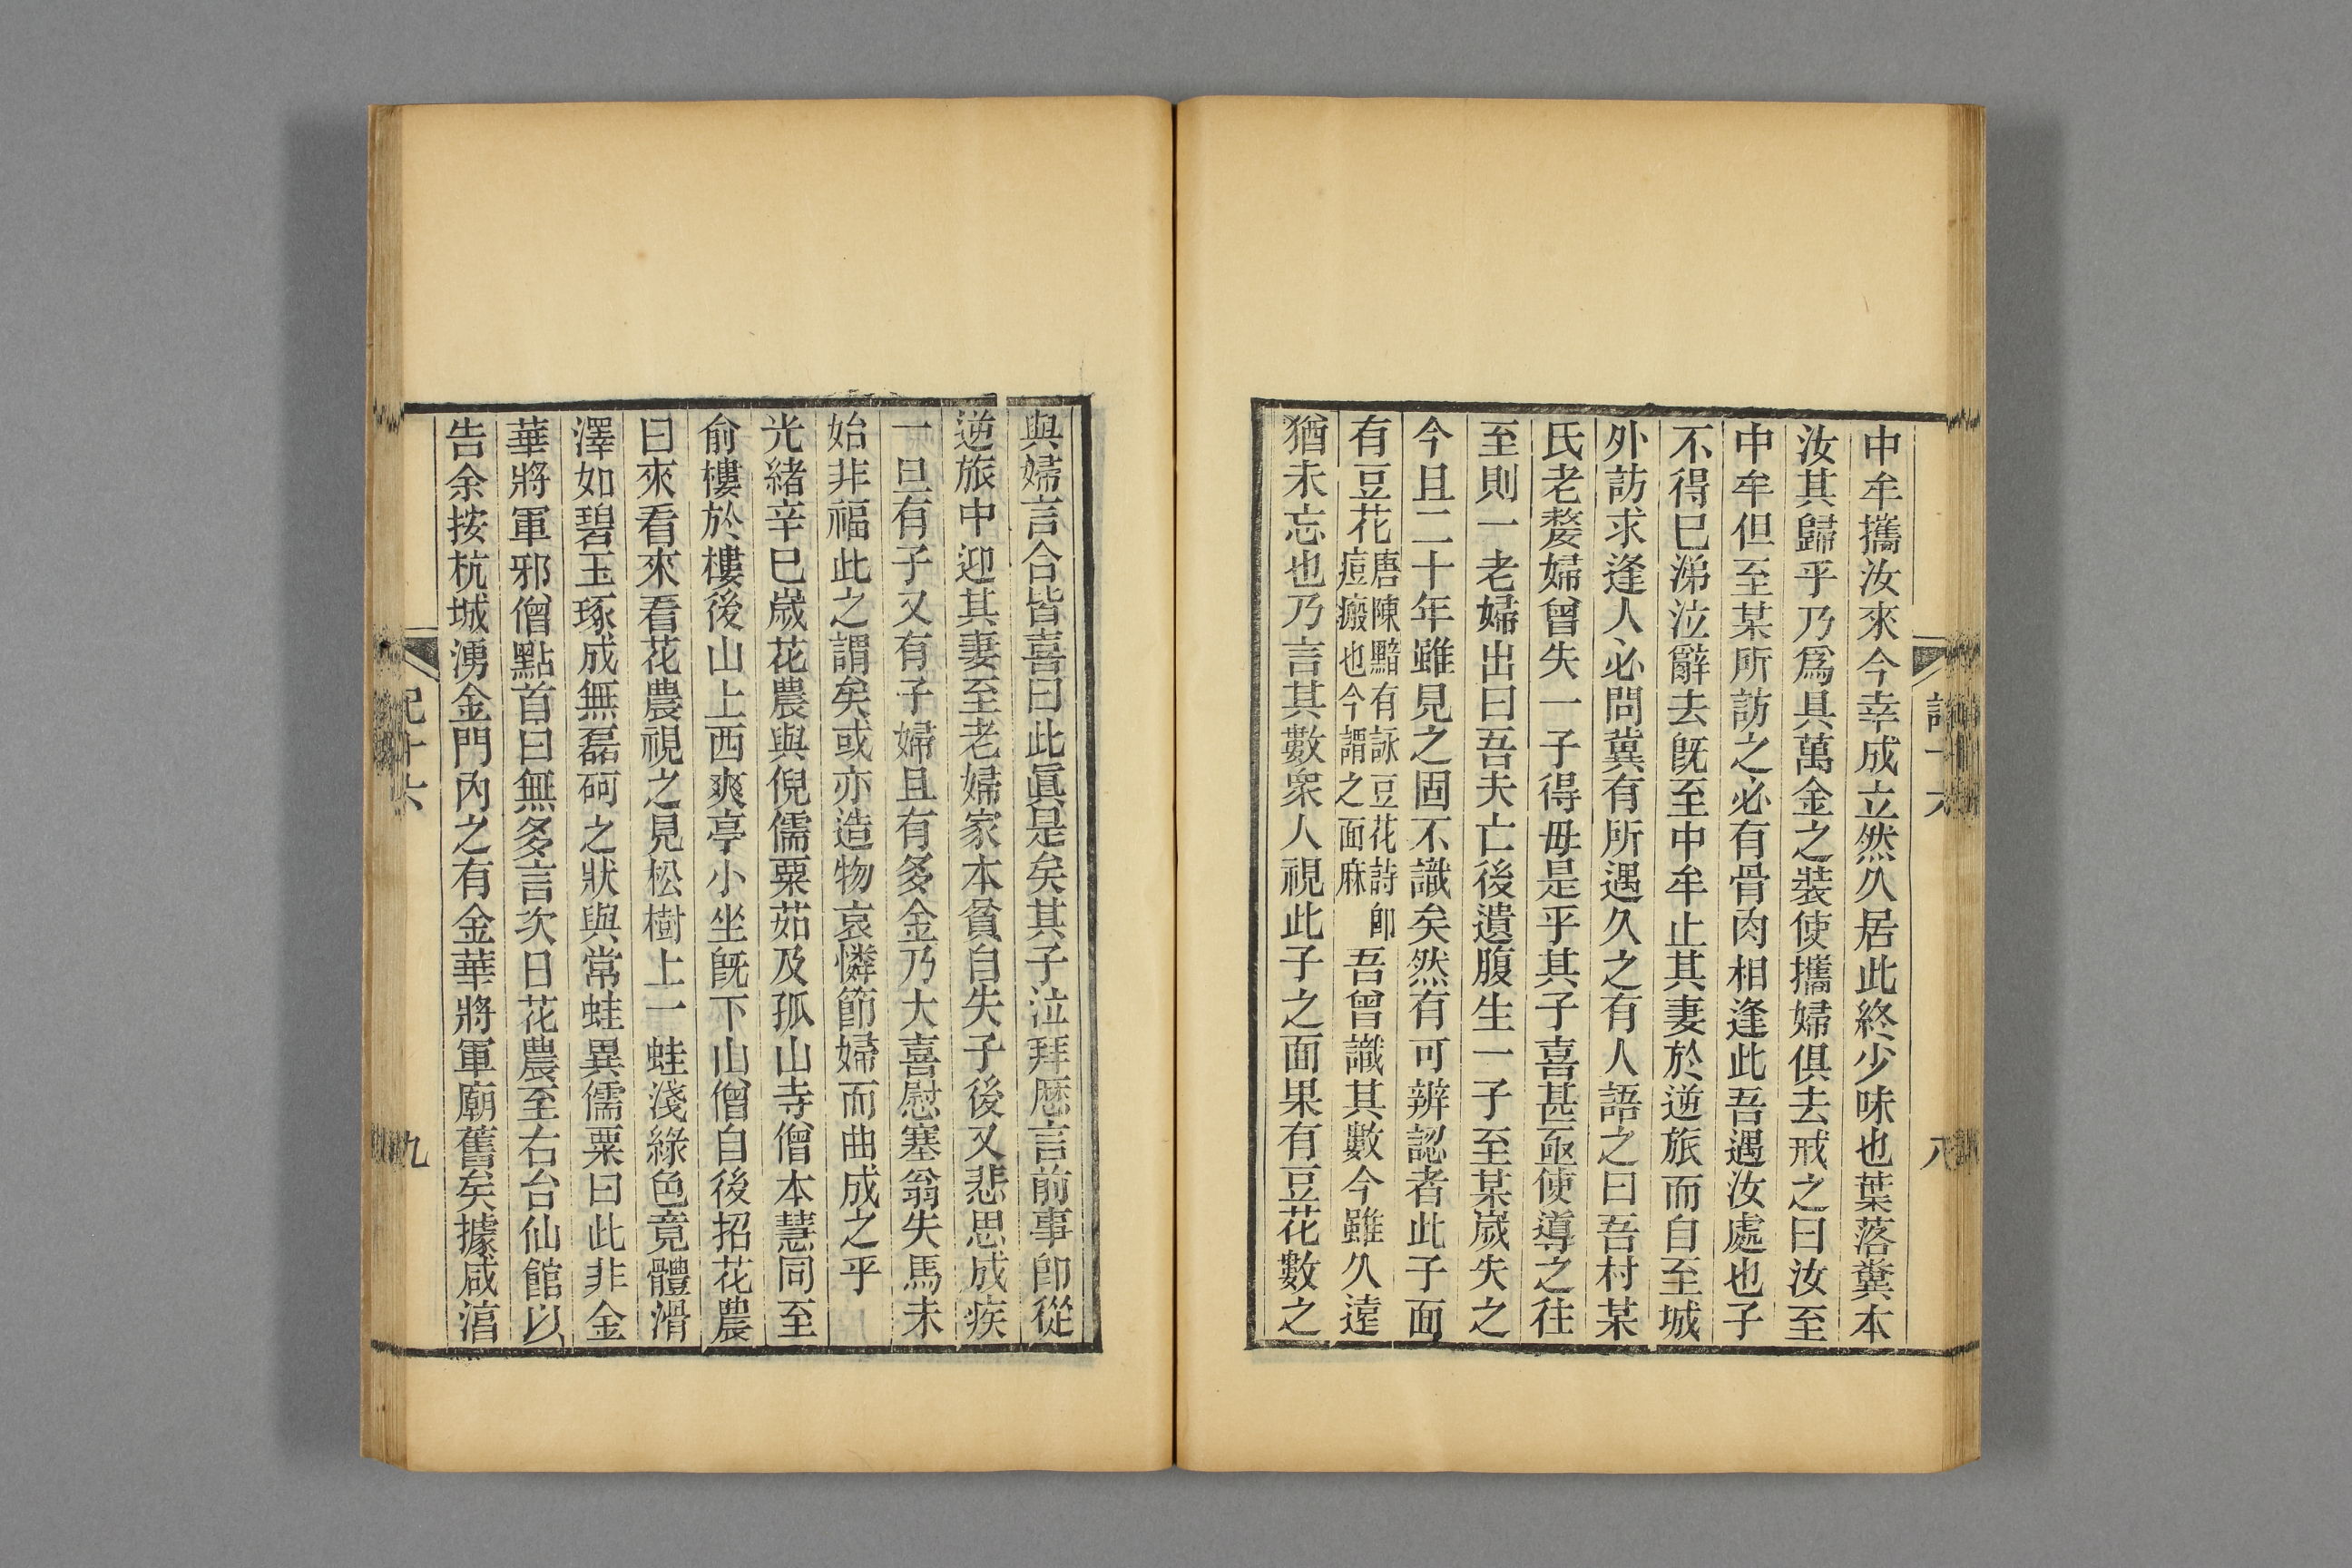 中牟攜汝來今幸成立然久居此終少味也葉落糞本
汝其歸乎乃爲具萬金之裝使攜婦俱去戒之曰汝至
中牟但至某所訪之必有骨肉相逢此吾遇汝處也子
不得已涕泣辭去旣至中牟止其妻於逆旅而自至城
外訪求逢人必問冀有所遇久之有人語之曰吾村某
氏老嫠婦曾失一子得毋是乎其子喜甚亟使導之往
至則一老婦出曰吾夫亡後遺腹生一子至某嵗失之
今且二十年雖見之固不識矣然有可辨認者此子面
有豆花唐陳黯有詠豆花詩卽痘瘢也今謂之面麻吾曾識其數今雖久遠
猶未忘也乃言其數衆人視此子之面果有豆花數之
八
與婦言合皆喜曰此眞是矣其子泣拜厯言前事卽從
逆旅中迎其妻至老婦家本貧自失子後又悲思成疾
一旦有子又有子婦且有多金乃大喜慰塞翁失馬未
始非福此之謂矣或亦造物哀憐節婦而曲成之乎
光緒辛巳嵗花農與倪儒粟茹及孤山寺僧本慧同至
俞樓於樓後山上西爽亭小坐旣下山僧自後招花農
曰來看來看花農視之見松樹上一蛙淺綠色竟體滑
澤如碧玉琢成無磊砢之狀與常蛙異儒粟曰此非金
華將軍邪僧點首曰無多言次日花農至右台仙館以
告余按杭城湧金門內之有金華將軍廟舊矣據咸湻
記十六
九